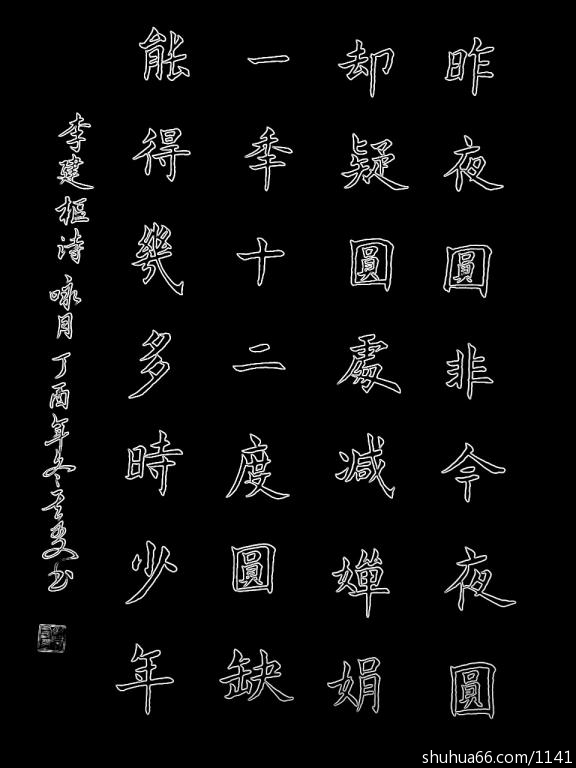 昨夜圓非今夜圓
却疑圓處减嬋娟
一秊十二度圓缺
能得幾多時少年
李建樞诗 咏月 丁酉年冬
shuhua66.com/1141